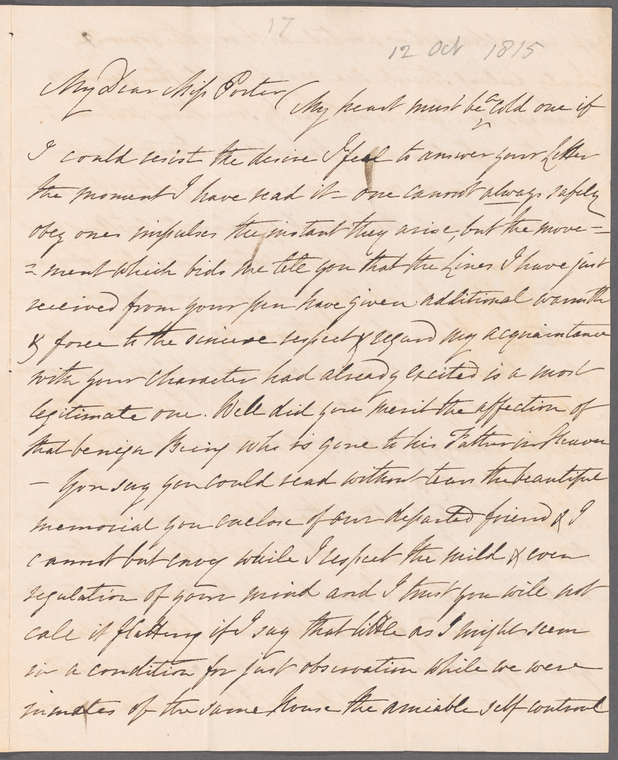 17
12 Oct 1815
My Dear Miss Porter
My heart must be a cold one if
I could resist the desire I feel to answer your Letter
the moment I have read it – one cannot always safely
obey ones impulses the instant they arise, but the move=
=ment which bids me tell you that the Lines I have just
received from your pen have given additional warmth
& force to the sincere respect & regard my acquaintance
with your character had already excited is a most
legitimate one. Well did you merit the affection of
that benign Being who is gone to his Father in Heaven
– You say you could read without tears the beautiful
memorial you enclose of our departed friend & I
cannot but envy while I respect the mild & even
regulation of your mind and I trust you will not
call it flattery if I say that little as I might seem
in a condition for just observation while we were
inmates of the same House the amiable self controul